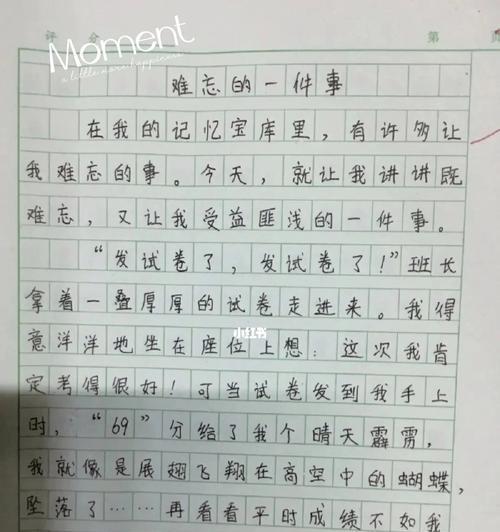 评 分
第 页
Moment
a little more happiness
难忘的一件事
在我的记忆宝库里，有许多让
我难忘的事。今天，就让我讲讲既
难忘，又让我受益匪浅的一件事。
“发试卷了，发试卷了！”班长
拿着一叠厚厚的试卷走进来。我得
意洋洋地坐在座位上想：这次我肯
小红书
定考得很好！可当试卷发到我手上
时，“69”分给了我个晴天霹雳，
我就像是展翅飞翔在高空中的蝴蝶，
坠落了……再看看平时成绩不如我